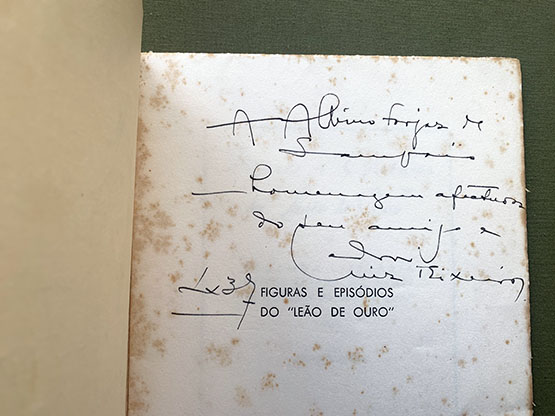 A Albino Forjaz de
Sampaio
homenagem afectuosa
do seu amigo e
admi
Luiz Teixeira
Lx 37
FIGURAS E EPISÓDIOS
DO "LEÃO DE OURO"